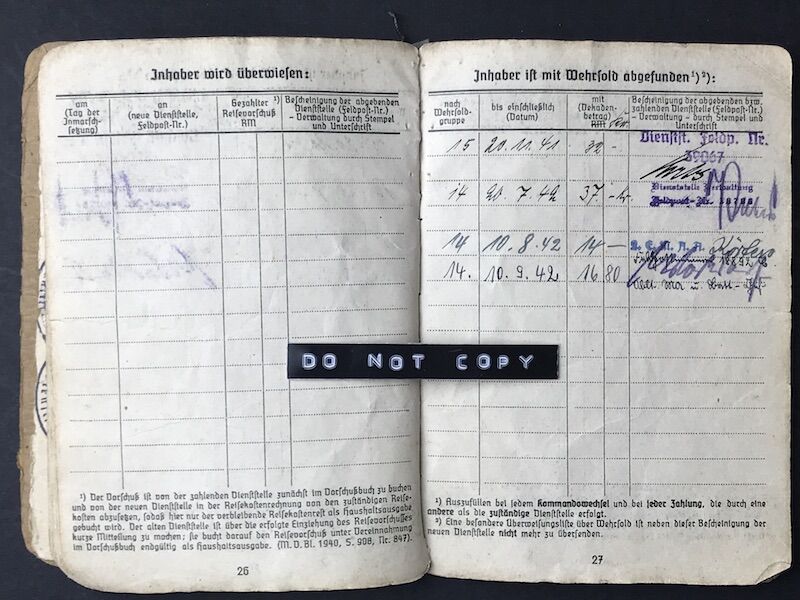 Inhaber wird überwiesen:
am
(Tag der
Inmarsch-
setzung)
an
(neue Dienststelle,
Feldpost-Nr.)
Gezahlter ¹)
Reisevorschuß
RM
Bescheinigung der abgebenden
Dienststelle (Feldpost-Nr.)
- Verwaltung durch Stempel
und Unterschrift
¹) Der Vorschuß ist von der zahlenden Dienststelle zunächst im Vorschußbuch zu buchen
und von der neuen Dienststelle in der Reisekostenrechnung von den zuständigen Reise-
kosten abzusetzen, sodaß hier nur der verbleibende Reisekostenrest als Haushaltsausgabe
gebucht wird. Der alten Dienststelle ist über die erfolgte Einziehung des Reisevorschusses
kurze Mitteilung zu machen; sie bucht darauf den Reisevorschuß unter Vereinnahmung
im Vorschußbuch endgültig als Haushaltsausgabe. (M. D. Bl. 1940, S. 998, Nr. 847).
26
Inhaber ist mit Wehrsold abgefunden ¹) ²):
nach
Wehrsold-
gruppe
bis einschließlich
(Datum)
mit
(Dekaden-
betrag)
RM
Bescheinigung der abgebenden bzw.
zahlenden Dienststelle (Feldpost-Nr.)
- Verwaltung - durch Stempel
und Unterschrift
15 20.11.41 32 -
Dienstst. Feldp. Nr.
39067
14 20.7.42 37.-
Dienststelle Verwaltung
Feldpost-Nr.
14 10.8.42 14 -
14. 10.9.42 16 80
DO NOT COPY
¹) Auszufüllen bei jedem Kommandowechsel und bei jeder Zahlung, die durch eine
andere als die zuständige Dienststelle erfolgt.
²) Eine besondere Überweisungsliste über Wehrsold ist neben dieser Bescheinigung der
neuen Dienststelle nicht mehr zu übersenden.
27